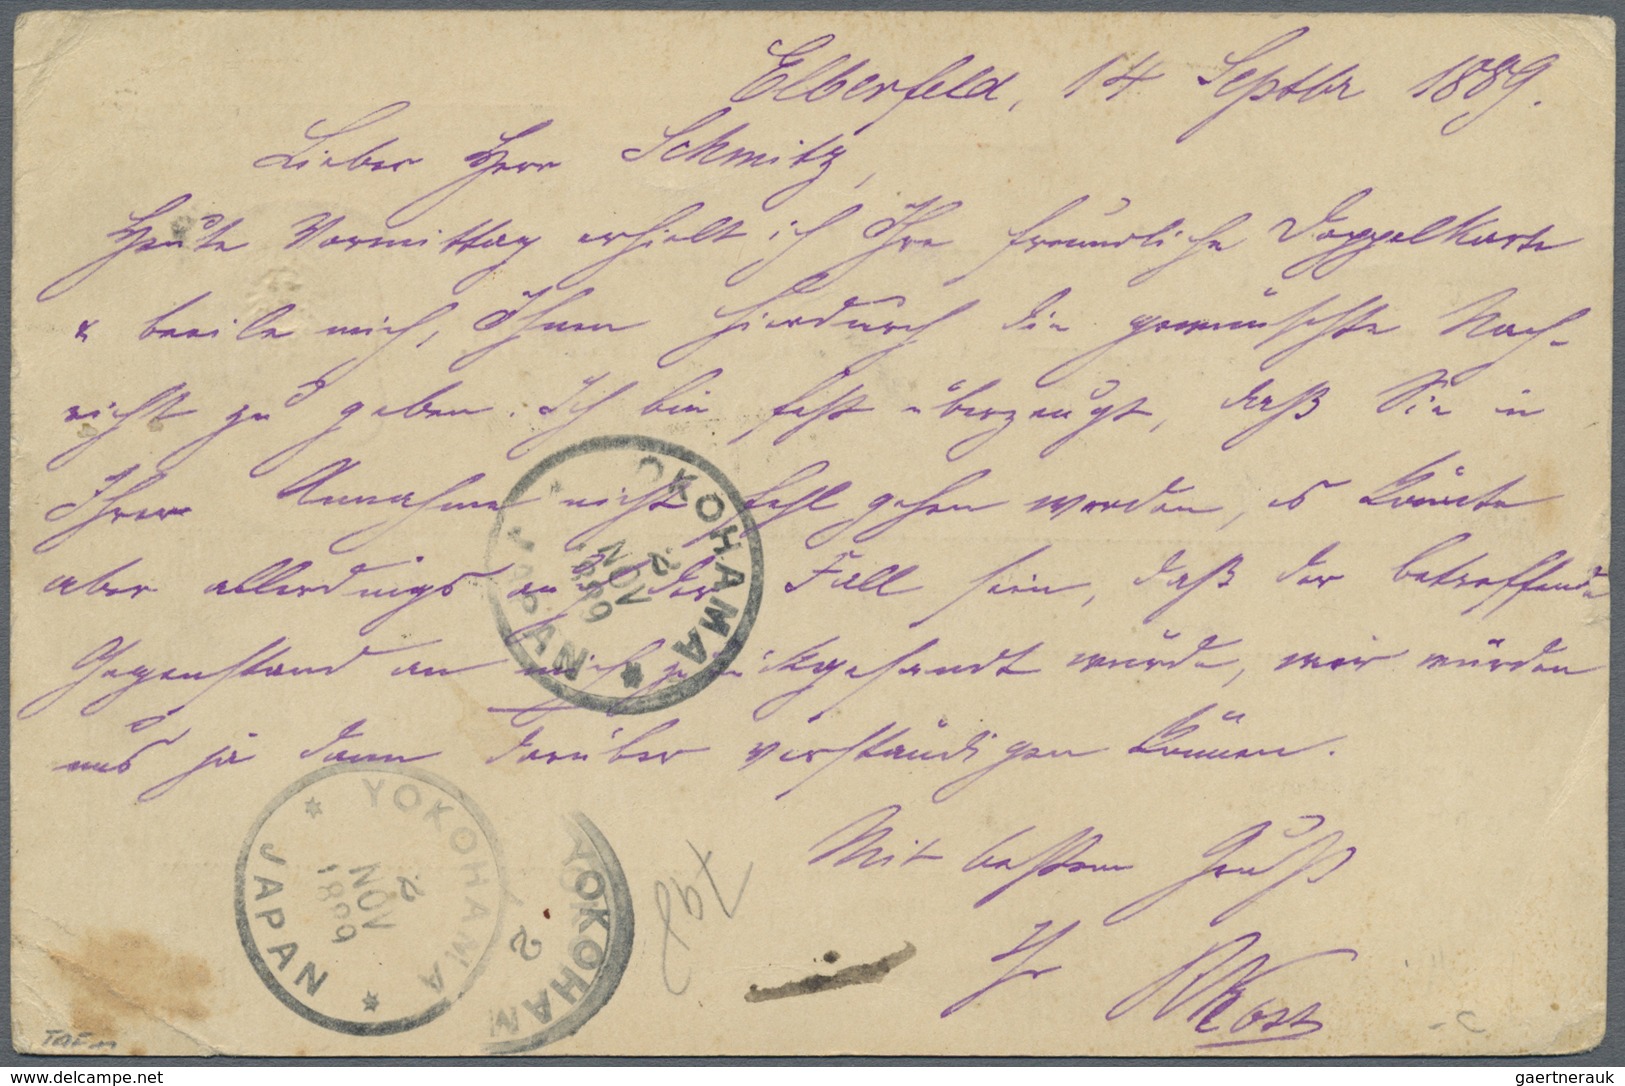 Elberfeld, 14 Septbr 1889.
Lieber Herr Schmitz,
Heute Vormittag erhielt ich Ihre freundliche Doppelkarte
& beeile mich, Ihnen hierdurch die gewünschte Nach-
richt zu geben. Ich bin fest überzeugt, daß Sie in
Ihrer Annahme nicht fehl gehen werden, es könnte
aber allerdings auch der Fall sein, daß der betreffende
Gegenstand an mich zurückgesandt würde, wir würden
uns ja dann darüber verständigen können.
Mit bestem Gruß
Ihr
YOKOHAMA
2
NOV
1899
JAPAN
YOKOHAMA
2
NOV
1899
JAPAN
YOKOHAM
2
gaertnerauk@delcampe.net